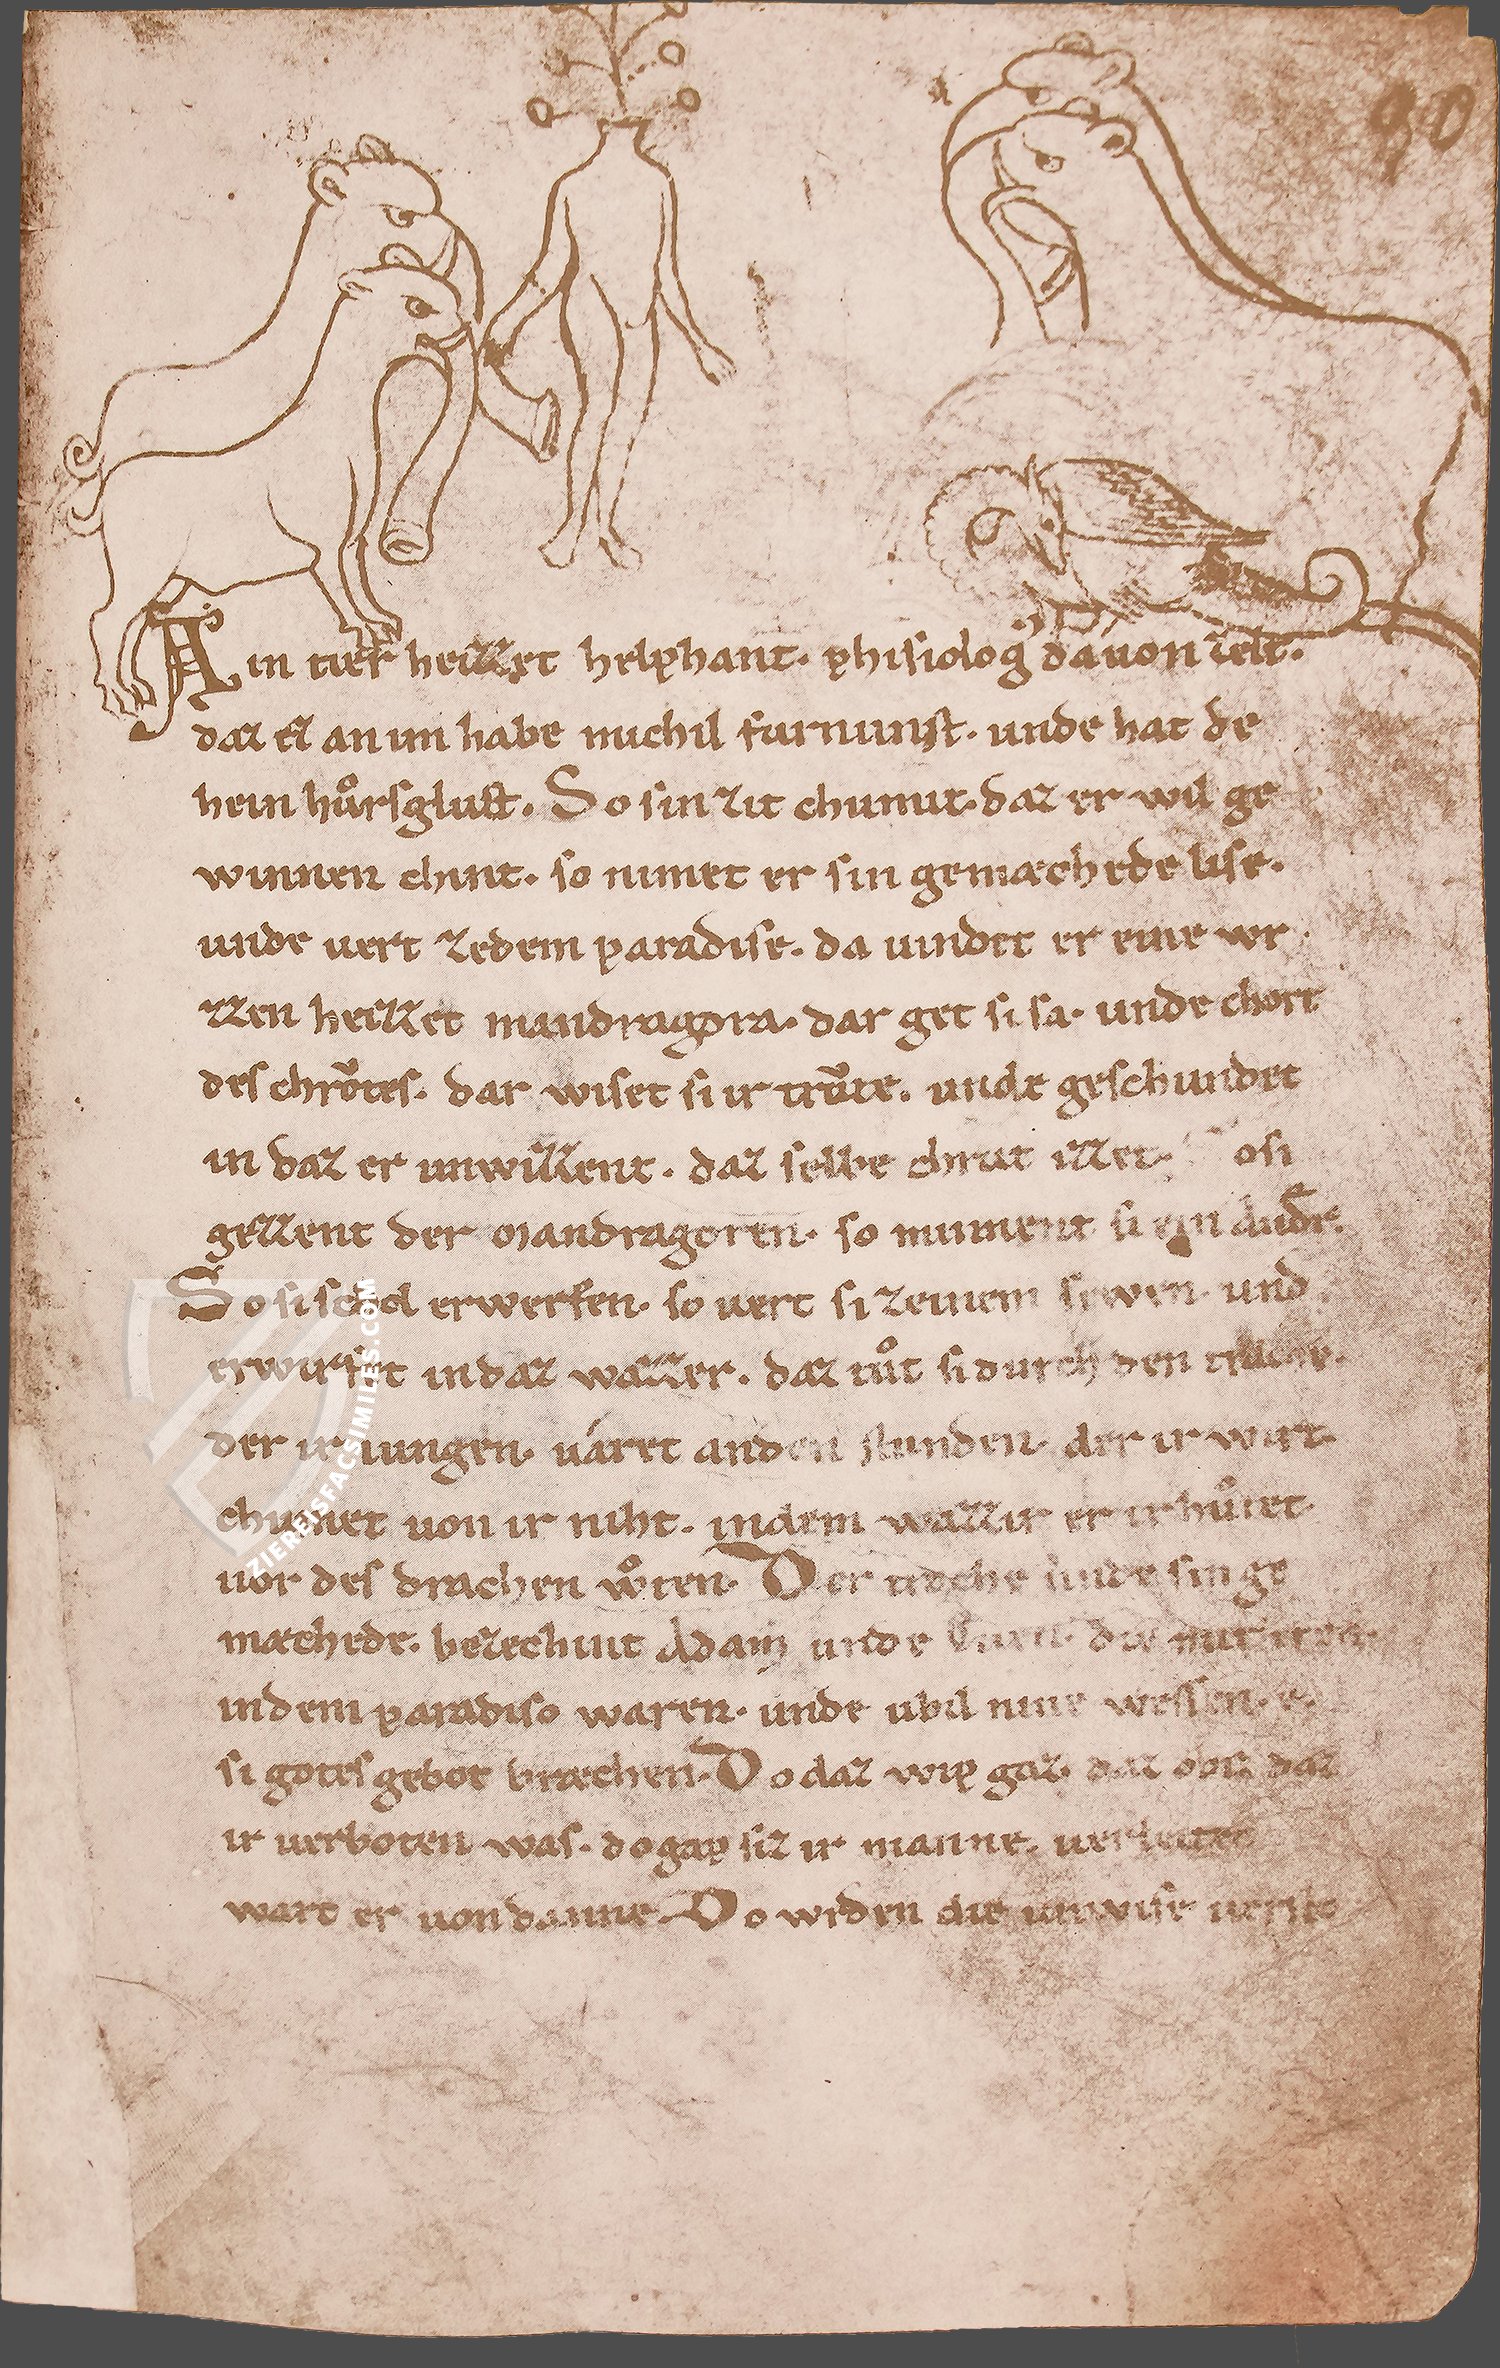 90
Ain tier heizzet helphant· phisiolog᾽ dauon zelt·
daz er an im habe michil furnunst· unde hat de
hein hůrsglust. So sin zit chumit· daz er wil ge
winnen chint· so nimet er sin gemæchede lise·
unde uert zedem paradise· da uindet er eine wr
zzen heizzet mandragora· dar get si sa· unde chort
des chrǒtes· dar wiset si ir trǒte. unde geschundet
in daz er unwizzent· daz selbe chrut izzet· osi
gezzent der Mandragoren· so minnent si ein andr̄·
So si schol erwerfen· so uert si zeinem sewen· und
erwirfet in daz wazzer· daz tůt si durch den trache·
der ir iungen· uáret anden stunden· der ir wirt·
chumet uon ir niht· in dem wazzir er ir hůtet·
uor des drachen wůten· Der unde sin ge
mæchede· bezechint Adam unde die
in dem paradiso waren· unde ubil niine wessen· e·
si gotes gebot bræchen· Do daz wip gaz· daz obiz daz
ir uerboten was· do gap siz ir manne· uerleitet
wart er uon danne· Do wrden die unwise
ZIEREISFACSIMILES.COM